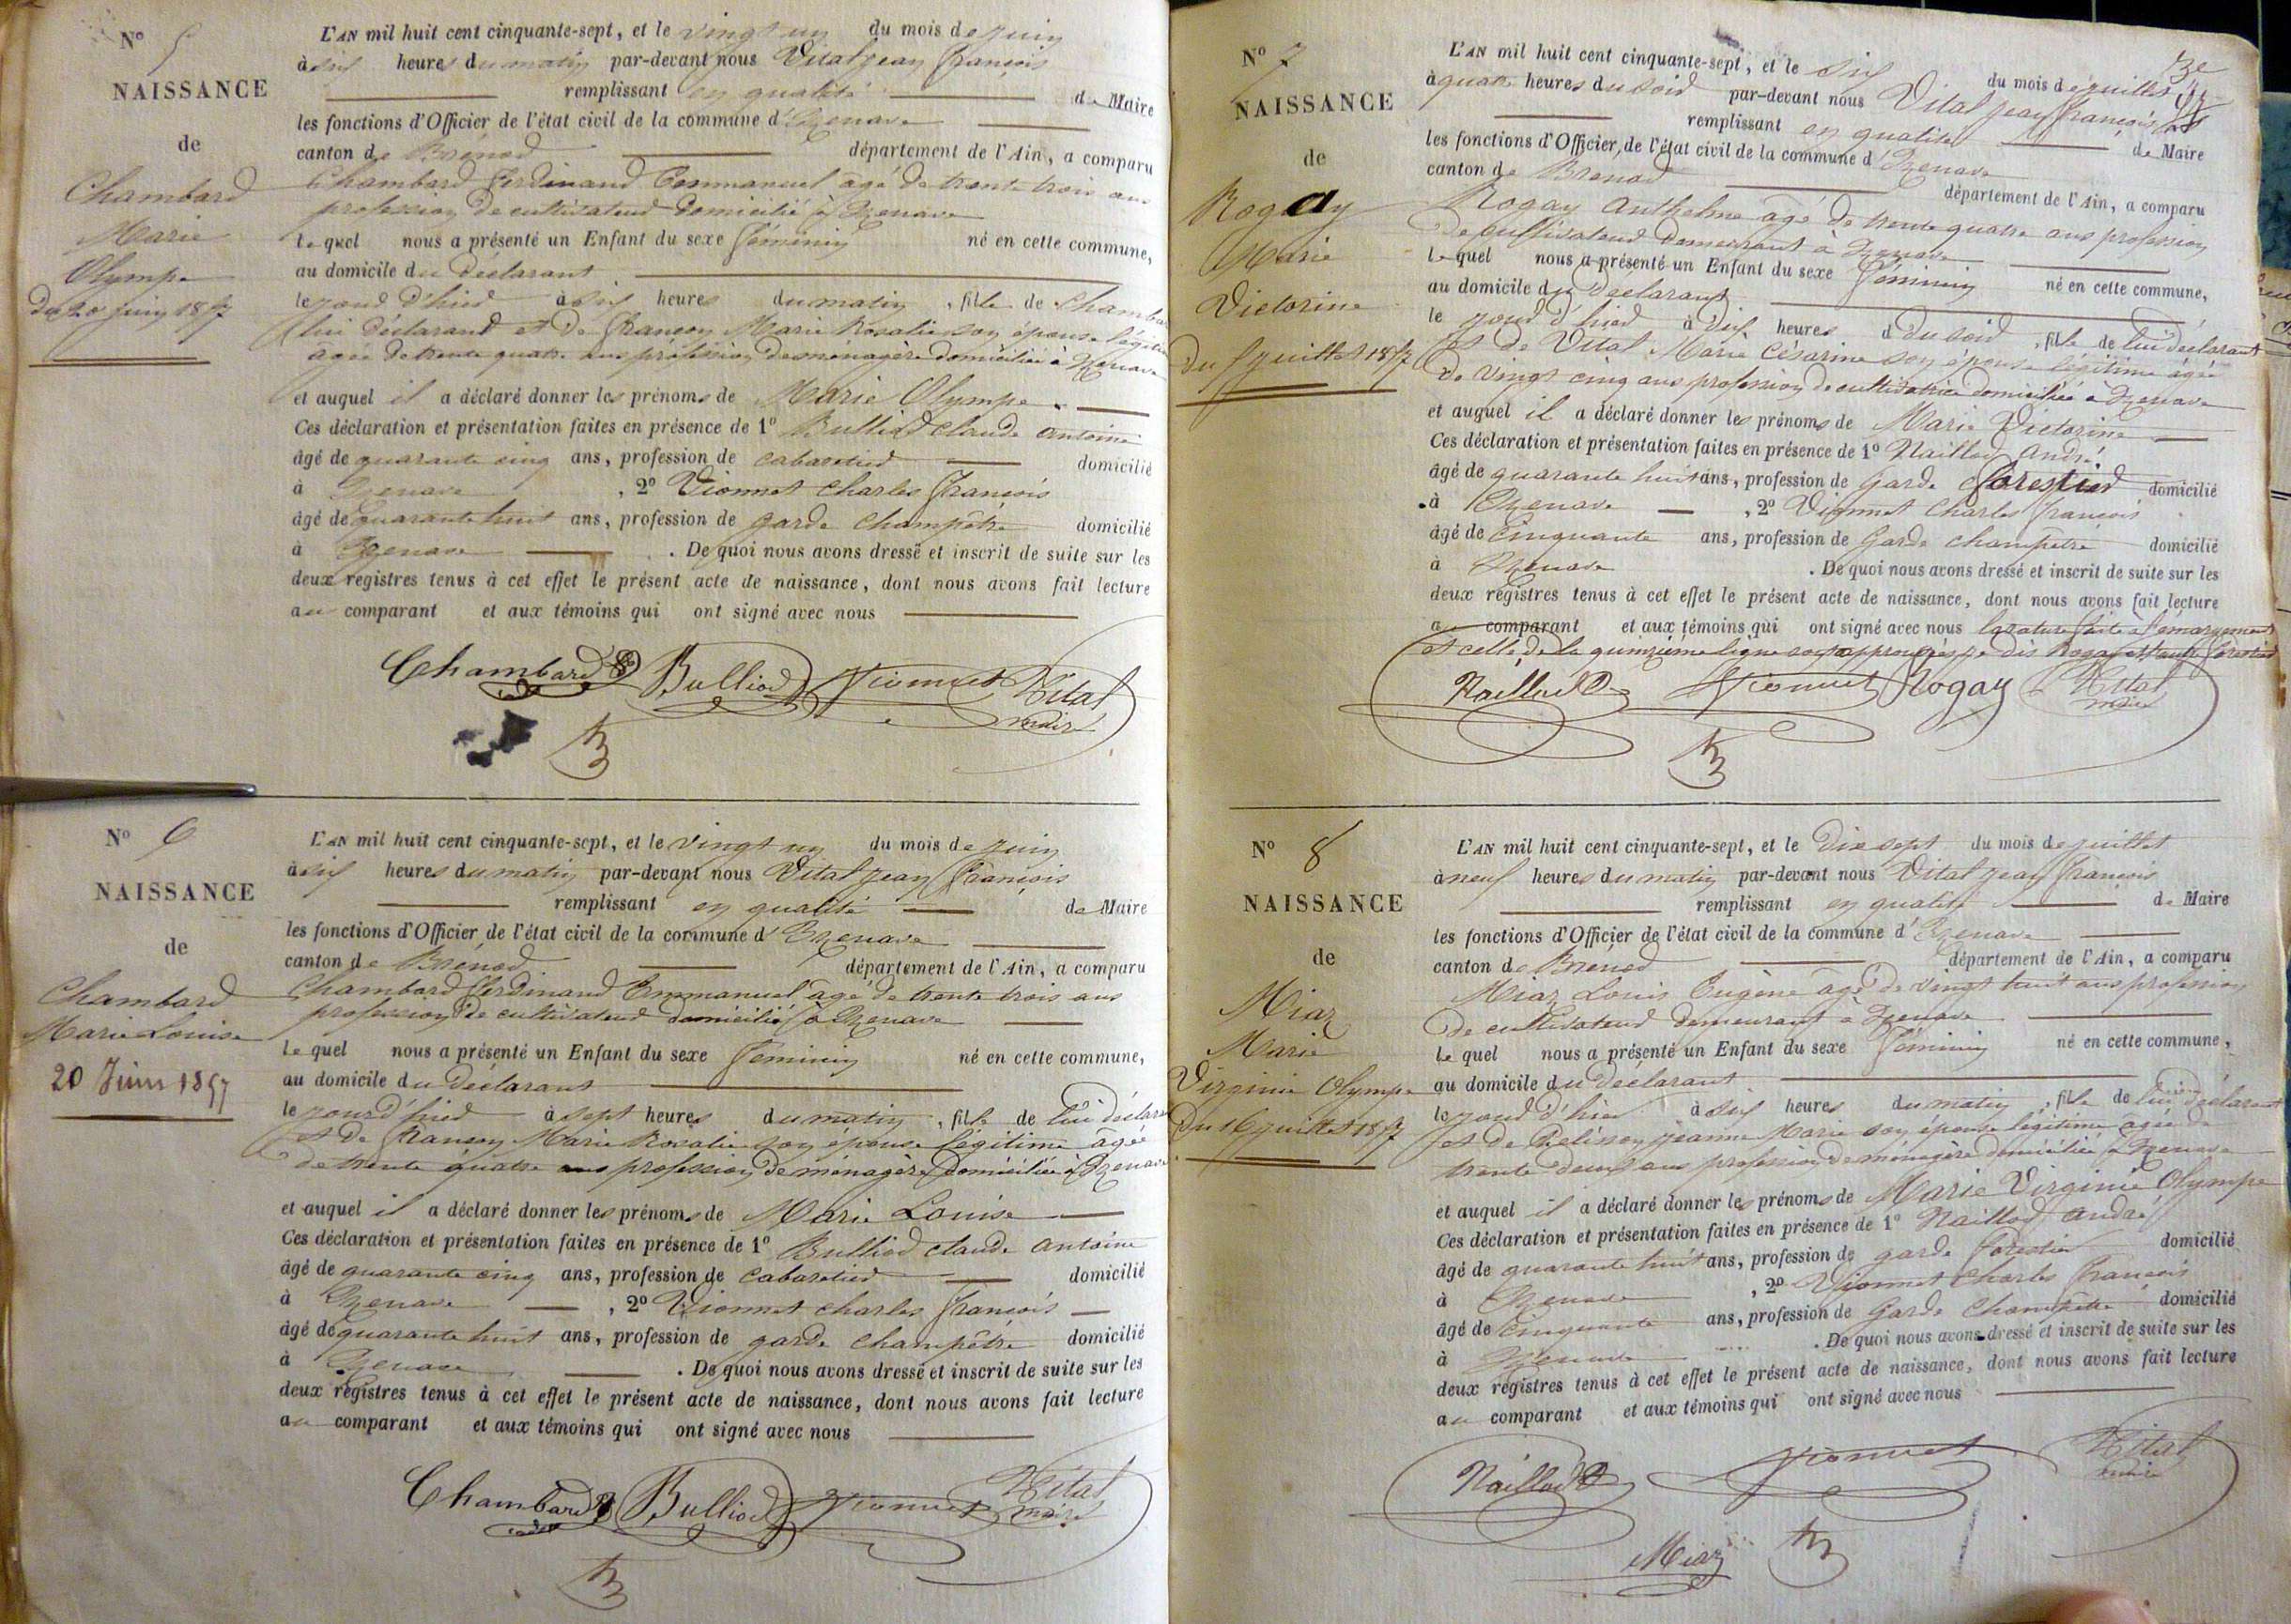 N° 5
NAISSANCE
de
Chambard
Marie
Olympe
du 20 juin 1857
L'AN mil huit cent cinquante-sept, et le vingt un du mois de juin
à dix heures du matin par-devant nous Vital jean françois
remplissant en qualité de Maire
les fonctions d'Officier de l'état civil de la commune d'Izenave
canton de Brénod département de l'Ain, a comparu
Chambard ferdinand Emmanuel âgé de trente trois ans
profession de cultivateur domicilié à Izenave
lequel nous a présenté un Enfant du sexe féminin né en cette commune,
au domicile du déclarant
le jour d'hier à six heures du matin, fille de Chambard
lui déclarand et de françon Marie Rosalie son épouse légitime
âgée de trente quatre ans profession de ménagère domiciliée à Izenave
et auquel il a déclaré donner les prénoms de Marie Olympe
Ces déclaration et présentation faites en présence de 1° Bulliod claude antoine
âgé de quarante cinq ans, profession de cabaretier domicilié
à Izenave, 2° Vionnet charles françois
âgé de quarante huit ans, profession de garde champêtre domicilié
à Izenave. De quoi nous avons dressé et inscrit de suite sur les
deux registres tenus à cet effet le présent acte de naissance, dont nous avons fait lecture
au comparant et aux témoins qui ont signé avec nous
Chambard Bulliod Vionnet Vital
maire
N° 6
NAISSANCE
de
Chambard
Marie Louise
20 Juin 1857
L'AN mil huit cent cinquante-sept, et le vingt un du mois de juin
à dix heures du matin par-devant nous Vital jean françois
remplissant en qualité de Maire
les fonctions d'Officier de l'état civil de la commune d'Izenave
canton de Brénod département de l'Ain, a comparu
Chambard ferdinand Emmanuel âgé de trente trois ans
profession de cultivateur domicilié à Izenave
lequel nous a présenté un Enfant du sexe féminin né en cette commune,
au domicile du déclarant
le jour d'hier à sept heures du matin, fille de lui déclarant
et de françon Marie Rosalie son épouse légitime âgée
de trente quatre ans profession de ménagère domiciliée à Izenave
et auquel il a déclaré donner les prénoms de Marie Louise
Ces déclaration et présentation faites en présence de 1° Bulliod claude antoine
âgé de quarante cinq ans, profession de cabaretier domicilié
à Izenave, 2° Vionnet charles françois
âgé de quarante huit ans, profession de garde champêtre domicilié
à Izenave. De quoi nous avons dressé et inscrit de suite sur les
deux registres tenus à cet effet le présent acte de naissance, dont nous avons fait lecture
au comparant et aux témoins qui ont signé avec nous
Chambard Bulliod Vionnet Vital
maire
N° 7
NAISSANCE
de
Rogay
Marie
Victorine
du 5 juillet 1857
L'AN mil huit cent cinquante-sept, et le six du mois de juillet
à quatre heures du soir par-devant nous Vital jean françois
remplissant en qualité de Maire
les fonctions d'Officier de l'état civil de la commune d'Izenave
canton de Brenod département de l'Ain, a comparu
Rogay anthelme âgé de trente quatre ans profession
de cultivateur demeurant à Izenave
lequel nous a présenté un Enfant du sexe féminin né en cette commune,
au domicile du déclarant
le jour d'hier à dix heures du soir, fille de lui déclarant
et de Vital Marie césarine son épouse légitime âgée
de vingt cinq ans profession de cultivatrice domiciliée à Izenave
et auquel il a déclaré donner les prénoms de Marie Victorine
Ces déclaration et présentation faites en présence de 1° Naillod andré
âgé de quarante huit ans, profession de garde forestier domicilié
à Izenave, 2° Vionnet charles françois
âgé de cinquante ans, profession de garde champêtre domicilié
à Izenave. De quoi nous avons dressé et inscrit de suite sur les
deux registres tenus à cet effet le présent acte de naissance, dont nous avons fait lecture
au comparant et aux témoins qui ont signé avec nous la rature faite à l'émargement
et celle de la quinzième ligne sont approuvées je dis Rogay et forestier
Naillod Vionnet Rogay Vital
maire
N° 8
NAISSANCE
de
Miaz
Marie
Virginie Olympe
du 16 juillet 1857
L'AN mil huit cent cinquante-sept, et le dix sept du mois de juillet
à neuf heures du matin par-devant nous Vital jean françois
remplissant en qualité de Maire
les fonctions d'Officier de l'état civil de la commune d'Izenave
canton de Brénod département de l'Ain, a comparu
Miaz Louis Eugène âgé de vingt huit ans profession
de cultivateur demeurant à Izenave
lequel nous a présenté un Enfant du sexe féminin né en cette commune,
au domicile du déclarant
le jour d'hier à dix heures du matin, fille de lui déclarant
et de Pelisson jeanne Marie son épouse légitime âgée de
trente deux ans profession de ménagère domiciliée à Izenave
et auquel il a déclaré donner les prénoms de Marie Virginie Olympe
Ces déclaration et présentation faites en présence de 1° Naillod andré
âgé de quarante huit ans, profession de garde forestier domicilié
à Izenave, 2° Vionnet charles françois
âgé de cinquante ans, profession de garde champêtre domicilié
à Izenave. De quoi nous avons dressé et inscrit de suite sur les
deux registres tenus à cet effet le présent acte de naissance, dont nous avons fait lecture
au comparant et aux témoins qui ont signé avec nous
Naillod Vionnet Vital
maire
Miaz